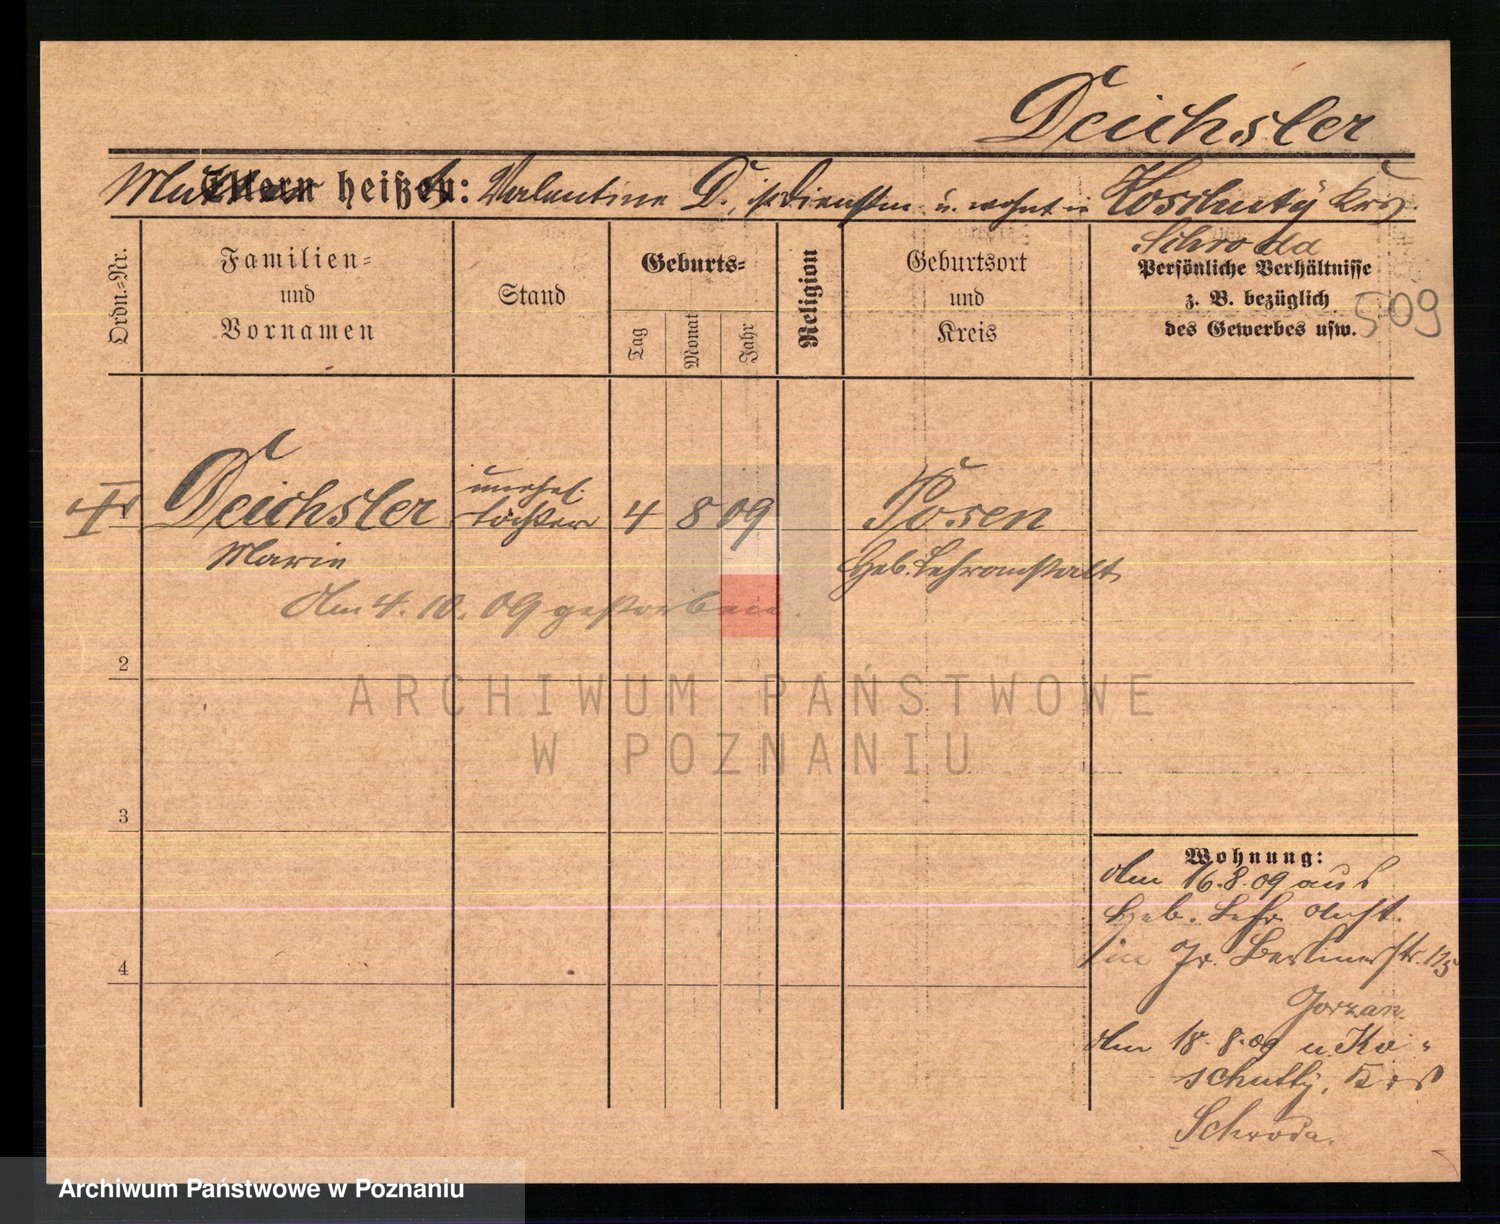 Deichsler
Mutter Eltern heißen: Valentine D., ist Dienstm. u. wohnt in Koschuty Krs.
Schroda
Ordn.-Nr.
Familien-
und
Vornamen
Stand
Geburts-
Tag
Monat
Jahr
Religion
Geburtsort
und
Kreis
Persönliche Verhältnisse
z. B. bezüglich
des Gewerbes usw.
509
1
Deichsler
Marie
unehel.
Tochter
4
8
09
Posen
Heb. Lehranstalt
Am 4. 10. 09 gestorben.
2
3
4
Wohnung:
Am 16.8.09 aus
Heb. Lehr Anst.
in Jr. Berlinerstr.
Am 18.8.09 n. Ko-
schutty, Krs
Schroda.
ARCHIWUM PAŃSTWOWE
W POZNANIU
Archiwum Państwowe w Poznaniu